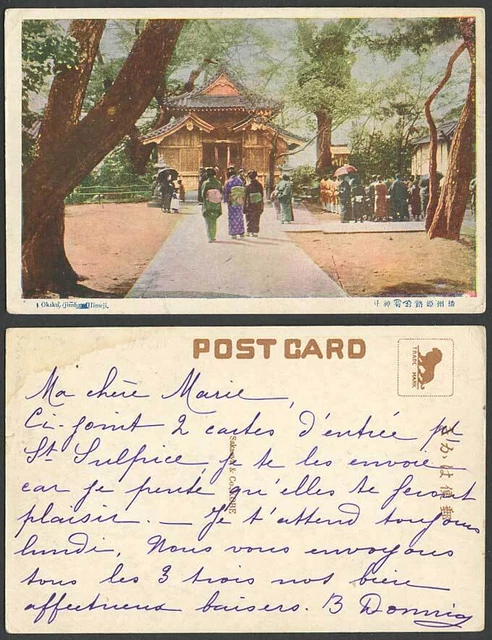 Okaku, (jinsha) Himeji.
播州姫路 神斗
POST CARD
TRADE MARK
Sakaeya & Co. KOBE
きかは便郵
Ma chère Marie,
Ci-joint 2 cartes d'entrée pr
St Sulpice, je te les envoie
car je pense qu'elles te feront
plaisir. — Je t'attend toujours
lundi. Nous vous envoyons
tous les 3 trois nos bien
affectueux baisers. B